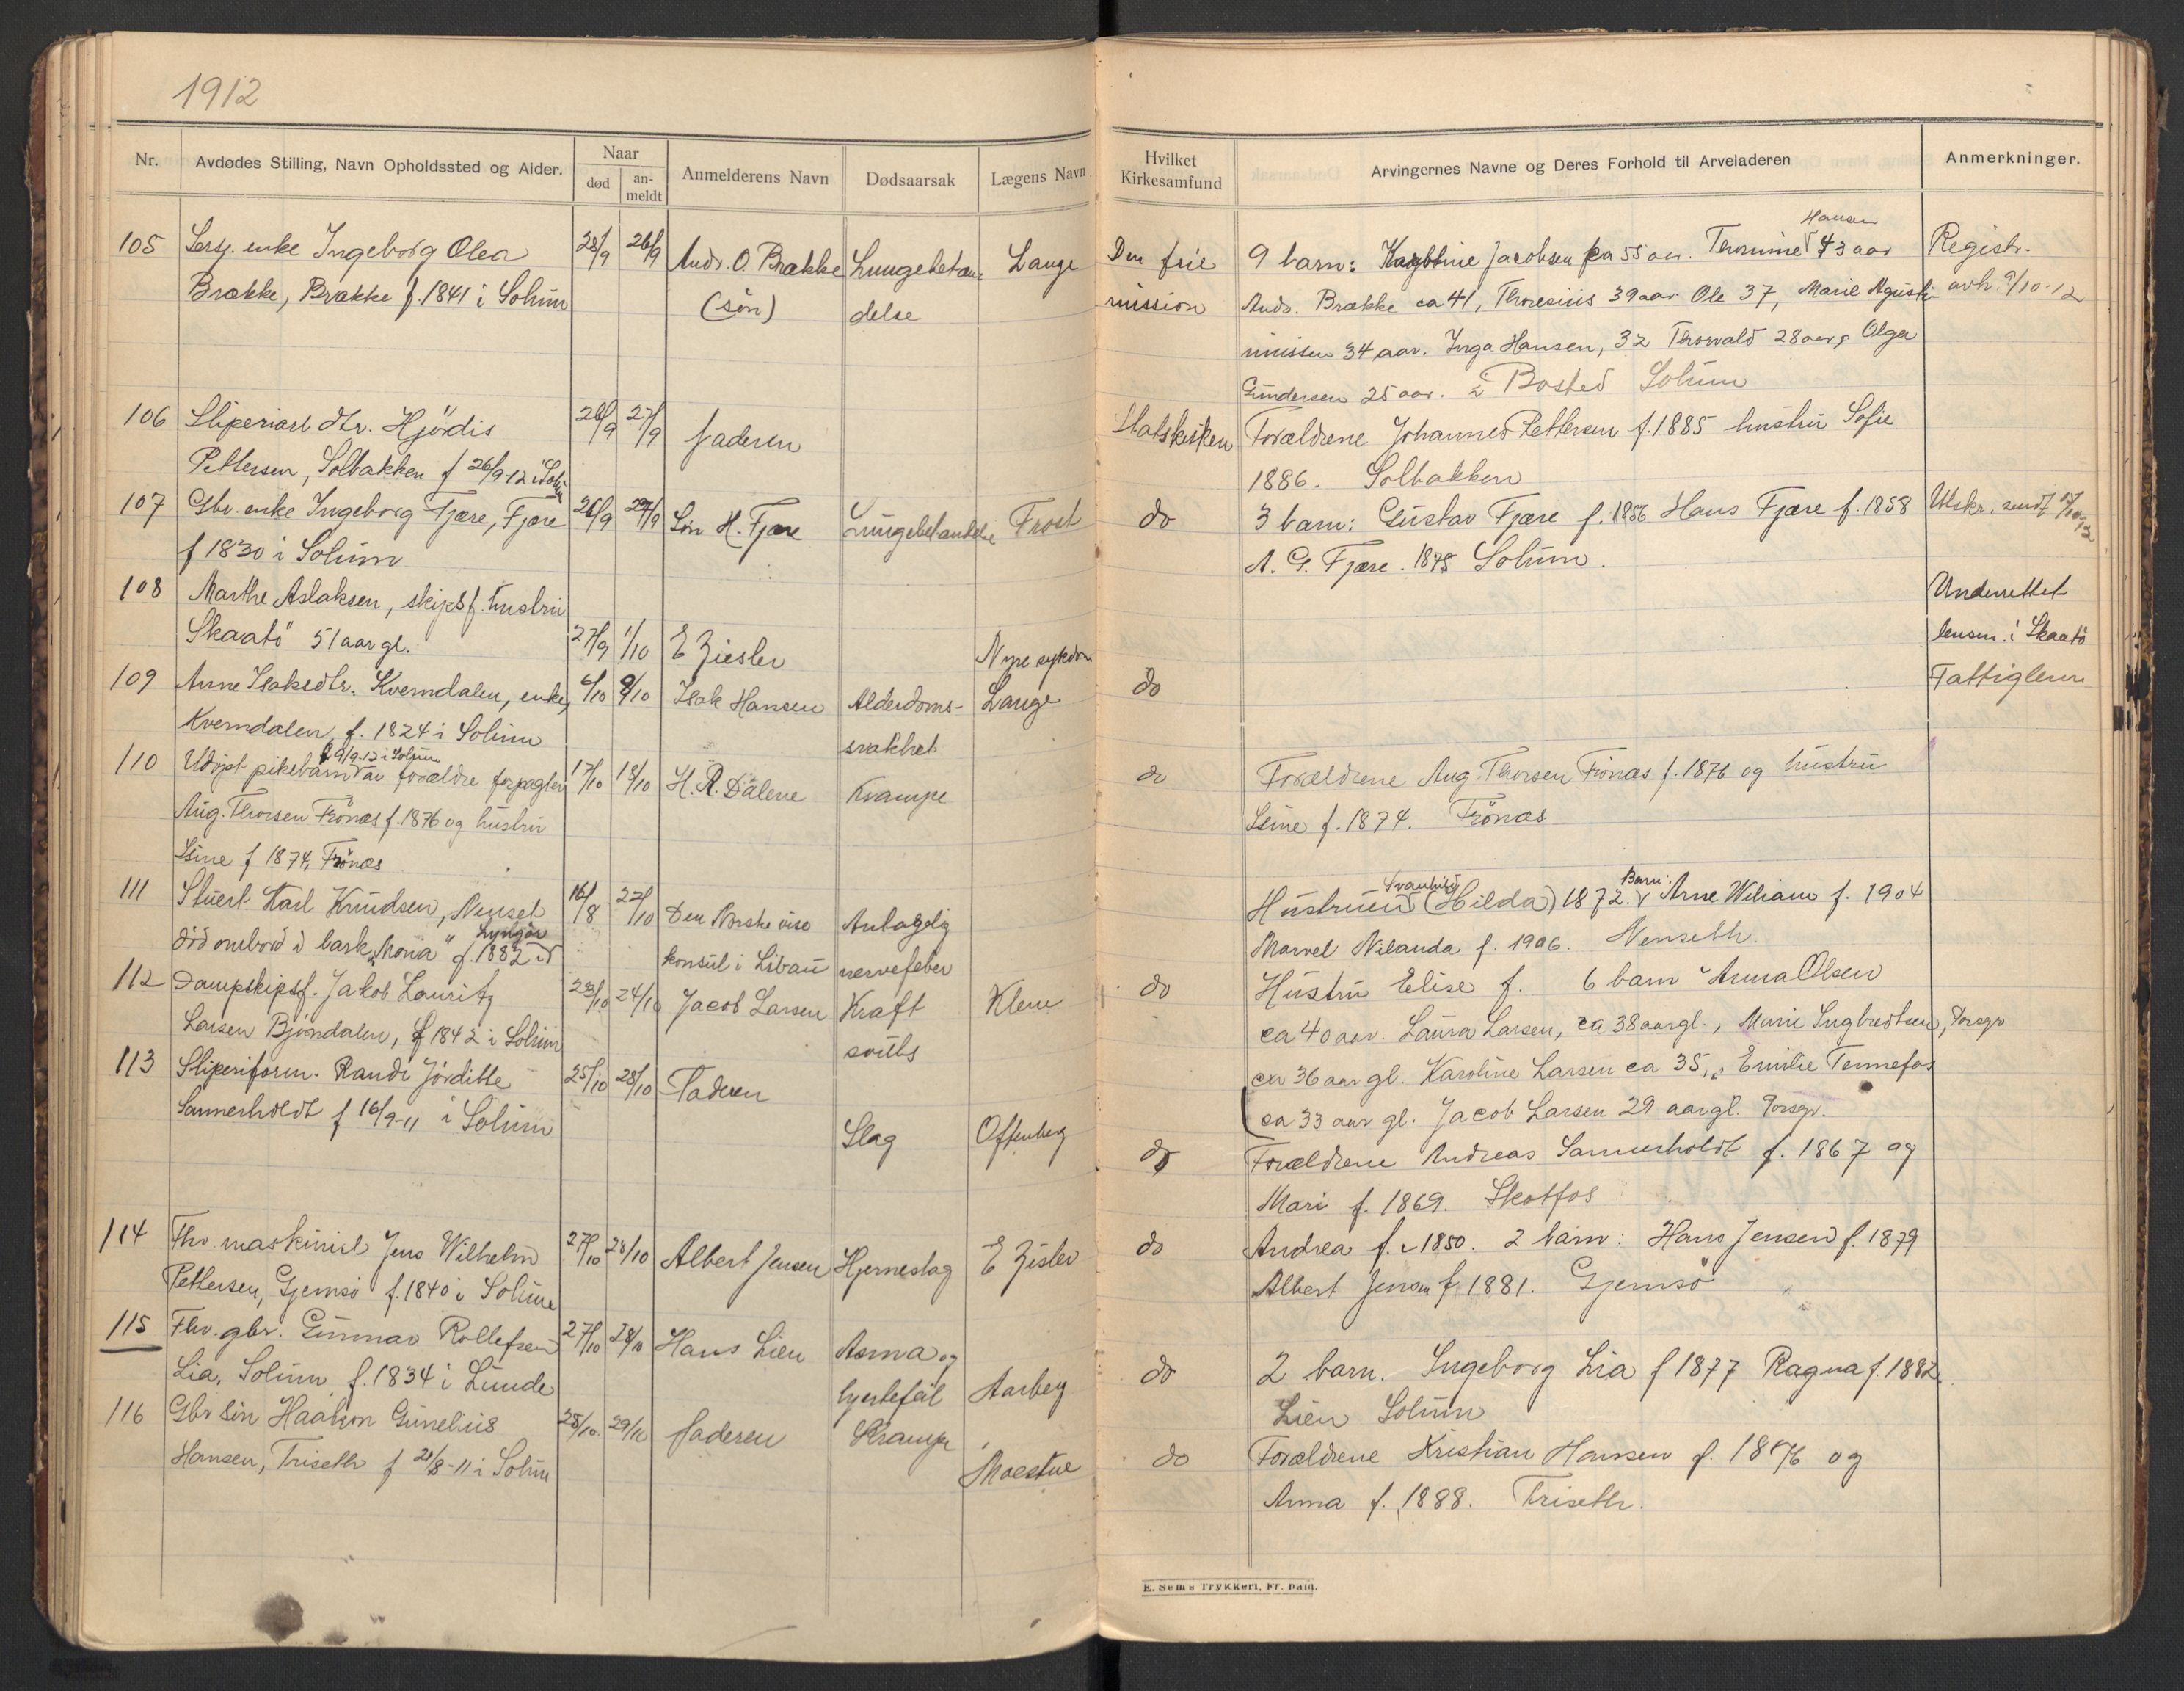 1912
Nr. Avdødes Stilling, Navn Opholdssted og Alder. Naar død an-meldt Anmelderens Navn Dødsaarsak Lægens Navn
Hvilket Kirkesamfund Arvingernes Navne og Deres Forhold til Arveladeren Anmerkninger.
105 Sersj. enke Ingeborg Olea 25/9 26/9 Andr. O. Brække Lungebetæn- Lange
Brække, Brække f. 1841 i Solum (søn) delse
Den frie 9 barn: Jacobsen ca 55 aar. Thomine Hansen 43 aar Registr.
mission Andr. Brække ca 41, Thoresius 39 aar Ole 37, Marie Agusti- avh. 9/10-12
nissen 34 aar. Inga Hansen, 32 Thorvald 28 aar, Olga
Gundersen 25 aar. Bosted Solum
106 Sliperiarb dtr. Hjördis 26/9 27/9 faderen
Pettersen, Solbakken f 26/9-12 i Solum
Statskirken Forældrene Johannes Pettersen f. 1885 hustru Sofie
1886. Solbakken
107 Gbr. enke Ingeborg Fjære, Fjære 26/9 27/9 Søn H. Fjære Lungebetændelse Frost
f 1830 i Solum
do 3 barn: Gustav Fjære f. 1856 Hans Fjære f. 1858 Utskr. sendt
A. G. Fjære. 1875 Solum.
108 Marthe Aslaksen, skipsf. hustru
Skaatö 51 aar gl. 27/9 1/10 E Ziesler Nyre sykdom
Underrettet
lensm. i Skaatö
109 Anne Isaksdtr. Kverndalen, enke, 6/10 9/10 Isak Hansen Alderdoms- Lange
Kverndalen f. 1824 i Solum svakhet
do Fattiglem
110 Udøpt pikebarn f 9/9-12 i Solum av forældre forpagter 17/10 18/10 H. R. Dalene Krampe
Aug. Thorsen Frönæs f. 1876 og hustru
Lsine f 1874, Frönæs
do Forældrene Aug. Thorsen Frönæs f. 1876 og hustru
Lsine f. 1874. Frönæs
111 Stuert Karl Knudsen, Nenset 16/8 22/10 Den Norske vise Antagelig
död ombord i bark "Mona" f. 1882 i Lyngör konsul i Libau nervefeber
Hustruen Svanhild (Hilda) 1872. Barn: Arne Wiliam f. 1904
Marvel Nilanda f. 1906. Nenseth.
112 Dampskipsf. Jakob Lauritz 23/10 24/10 Jacob Larsen Kræft Klem
Larsen Bjöndalen, f 1842 i Solum svulst
do Hustru Elise f. 6 barn Anna Olsen
ca 40 aar. Laura Larsen, ca 38 aar gl., Marie Ingbredtsen, Porsgr
ca 36 aar gl. Karoline Larsen ca 35, Emilie Tennefos
ca 33 aar gl. Jacob Larsen 29 aar gl. Porsgr.
113 Sliperiform. Randi Jörditte 25/10 28/10 Faderen
Sannerholdt f 16/9-11 i Solum Slag Offenberg
do Forældrene Andreas Sannerholdt f. 1867 og
Mari f. 1869. Skotfos
114 Fhv. maskinist Jens Wilhelm 27/10 28/10 Albert Jensen Hjerneslag E Zisler
Pettersen, Gjemsö f. 1840 i Solum
do Andrea f. 1850. 2 barn: Hans Jensen f. 1879
Albert Jensen f. 1881. Gjemsö
115 Fhv. gbr. Gunnar Rollefsen 27/10 28/10 Hans Lien Asma og
Lia, Solum f. 1834 i Lunde hjertefeil Aarberg
do 2 barn. Ingeborg Lia f 1877 Ragna f. 1882
Lien Solum
116 Gbr sön Haakon Gunelius 28/10 29/10 faderen Krampe
Hansen, Triseth f 21/8-11 i Solum Moestue
do Forældrene Kristian Hansen f. 1876 og
Anna f. 1888. Triseth.
E. Sems Trykkeri, Fr. hald.